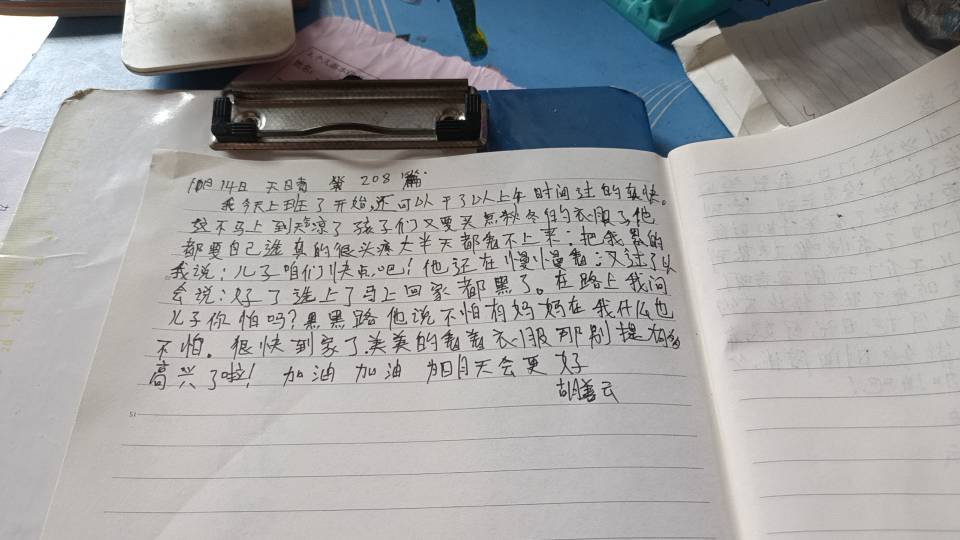 10月14日 天日青 第 208 篇
我今天上班了开始,还可以干了以上午时间过的真快。
这不马上到天凉了孩子们又要买点秋冬的衣服了他
都要自己选真的很头疼大半天都看不上来:把我累的
我说:儿子咱们快点吧!他还在慢慢看:又过了以
会说:好了选上了马上回家都黑了。在路上我问
儿子你怕吗?黑黑路他说不怕有妈妈在我什么也
不怕。很快到家了美美的看看衣服那别提有多
高兴了啦! 加油 加油 明天会更好
胡善云
51